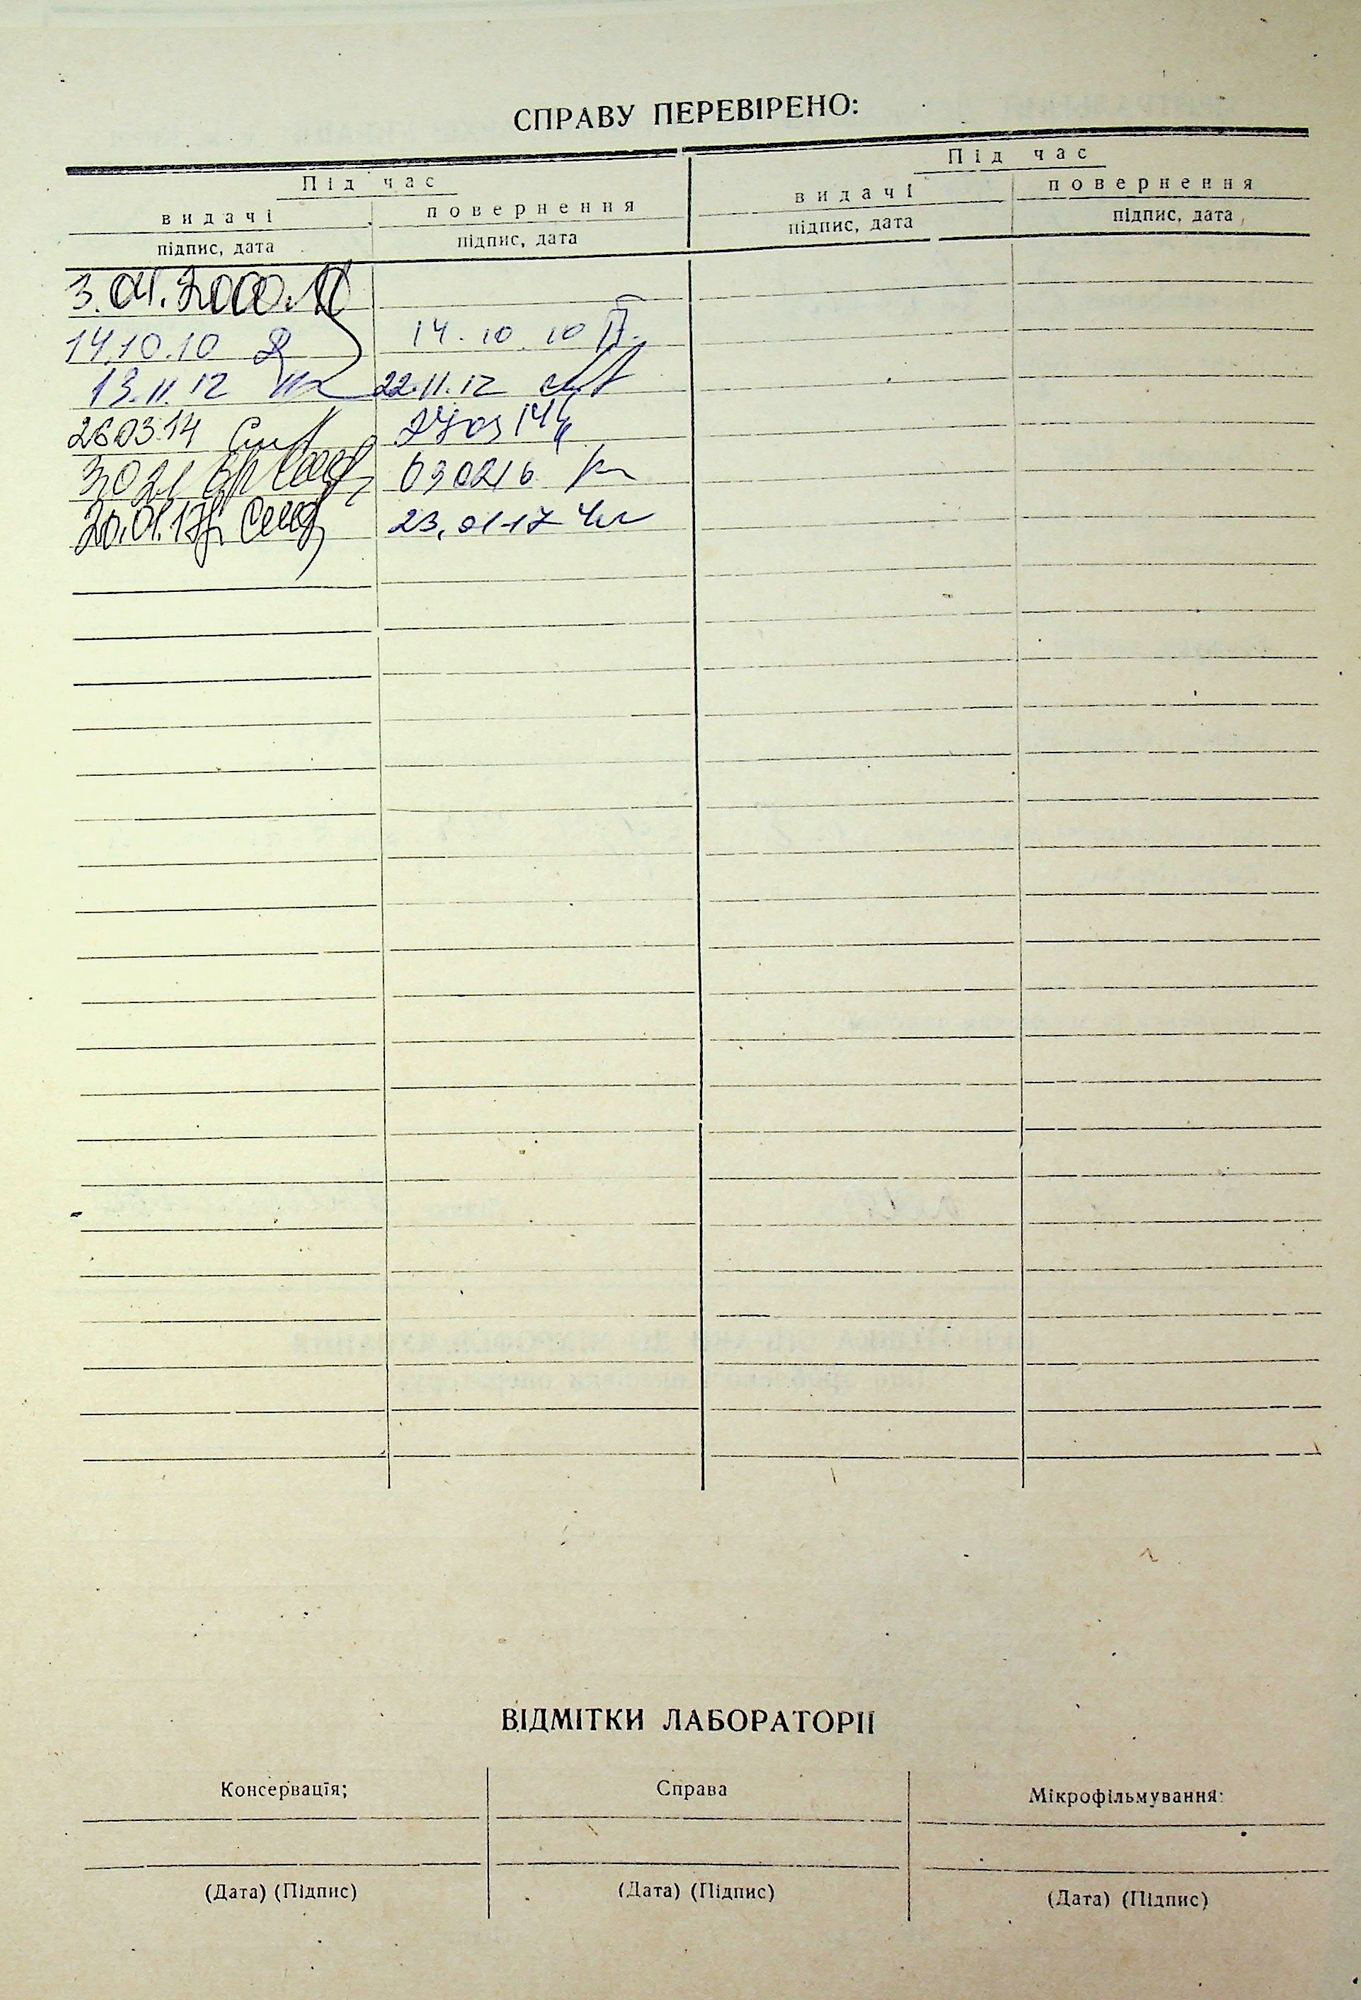 СПРАВУ ПЕРЕВІРЕНО:
Під час Під час
видачі повернення видачі повернення
підпис, дата підпис, дата підпис, дата підпис, дата
3.04.2000.
14.10.10 14.10 10 П.
13.11.12 22.11.12
26.03.14 27 03 14
030216
20.01.17 23.01.17
ВІДМІТКИ ЛАБОРАТОРІІ
Консервація; Справа Мікрофільмування:
(Дата) (Підпис) (Дата) (Підпис) (Дата) (Підпис)